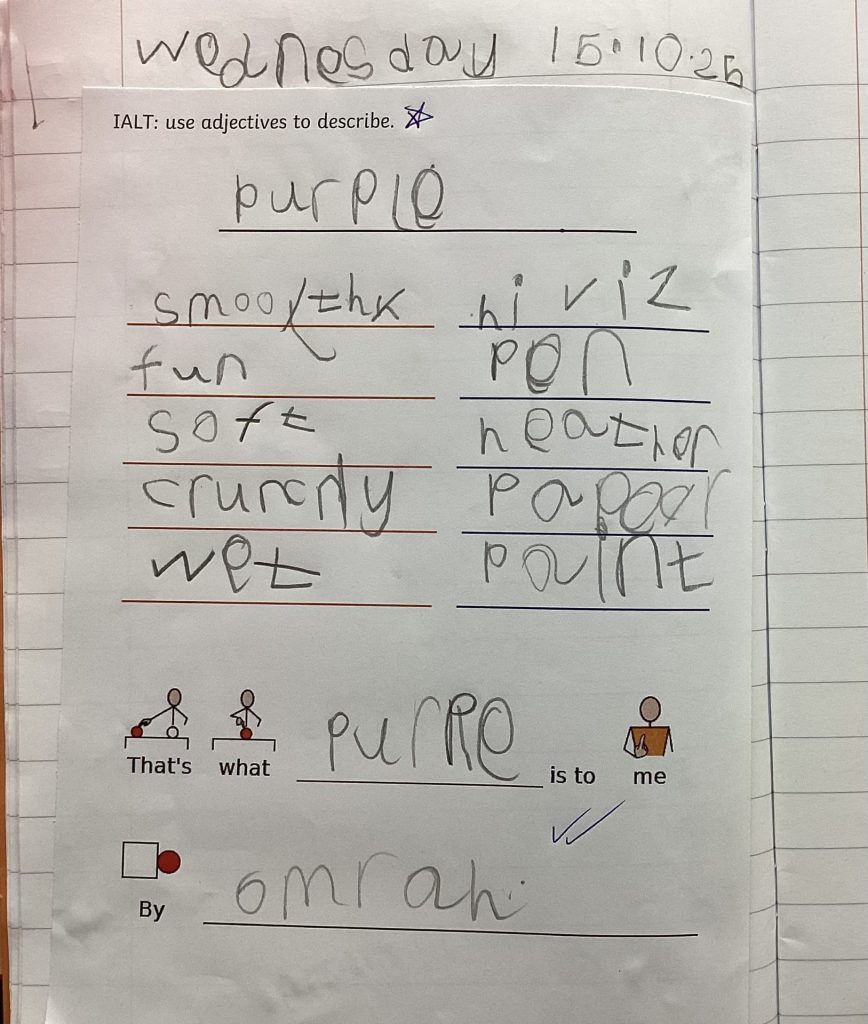 Wednesday 15.10.25
IALT: use adjectives to describe.
purple
smooth hi viz
fun pen
soft heather
crunchy papeer
wet paint
That's what purple is to me
By omrah